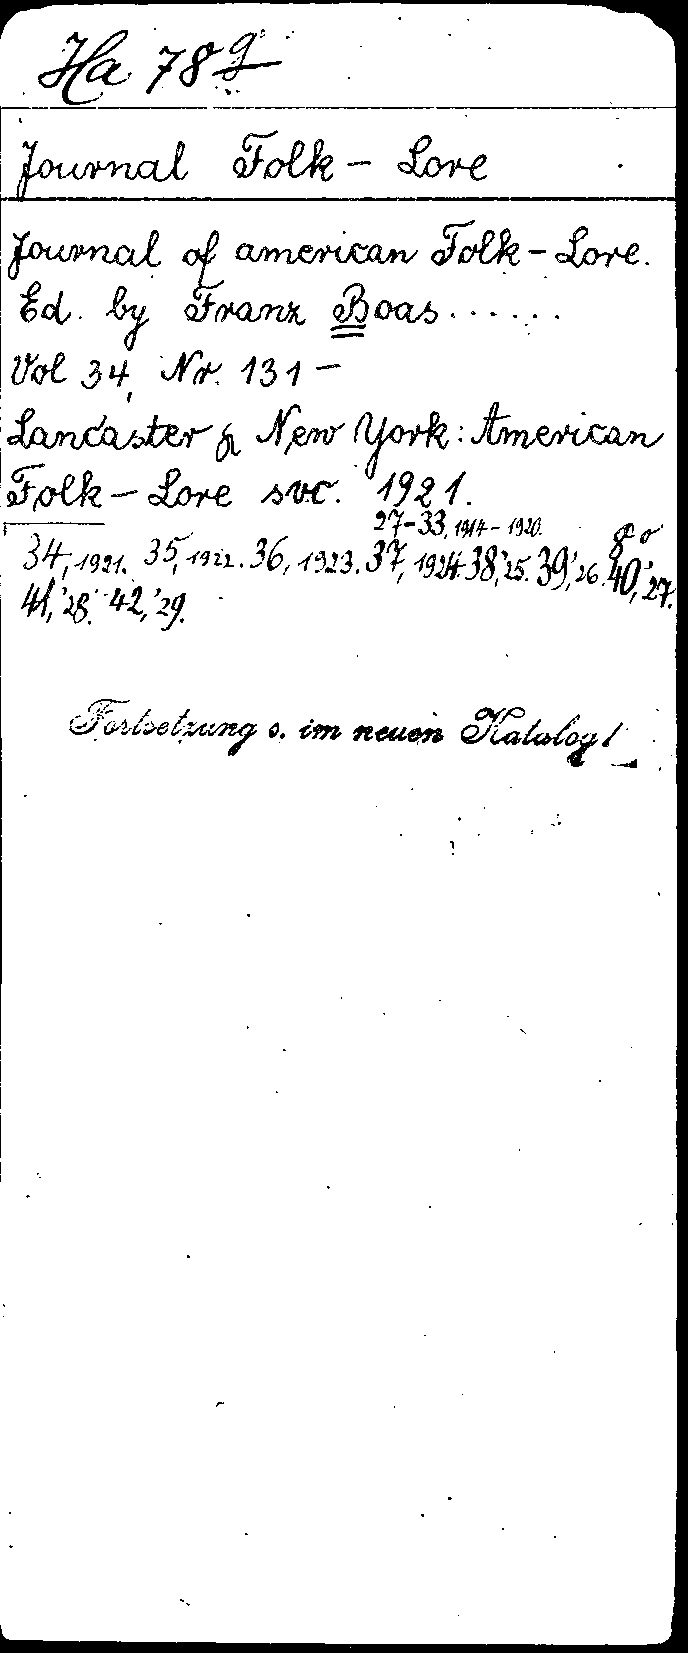 Ha 78 g
Journal Folk - Lore
Journal of american Folk - Lore.
Ed. by Franz Boas......
Vol 34, Nr. 131 -
Lancaster & New York: American
Folk - Lore soc. 1921.
27-33, 1914-1920. 8°
34, 1921. 35, 1922. 36, 1923. 37, 1924. 38, '25. 39, '26. 40, '27.
41, '28. 42, '29.
Fortsetzung s. im neuen Katalog!